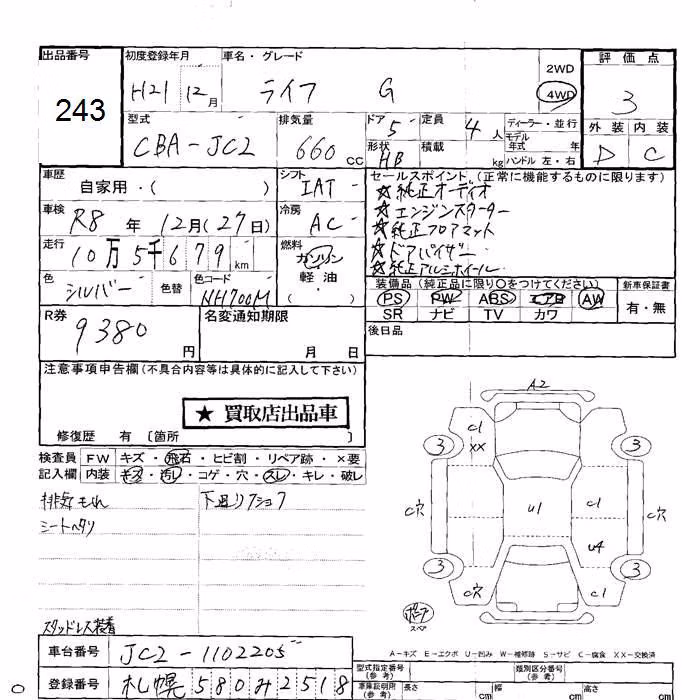 出品番号 初度登録年月 車名・グレード 評価点
243 H21 12月 ライフ G 2WD 4WD 3
型式 排気量 ドア 定員 ディーラー・並行 外装 内装
CBA-JC2 660cc 5 4人 モデル年式 年
形状 HB 積載 kg ハンドル 左・右 D C
車歴 自家用・( ) シフト IAT セールスポイント (正常に機能するものに限ります)
☆純正オーディオ
☆エンジンスターター
車検 R8年 12月(27日) 冷房 AC ☆純正フロアマット
☆ドアバイザー
走行 10万5千679km 燃料 ガソリン・軽油・( ) ☆純正アルミホイール
色 シルバー 色替 色コード NH700M
装備品 (純正品に限り○をつけてください) 新車保証書
PS PW ABS エアB AW 有・無
SR ナビ TV カワ
R券 9380円 名変通知期限 月 日 後日品
注意事項申告欄(不具合内容等は具体的に記入して下さい)
★ 買取店出品車
修復歴 有 〔箇所 〕
検査員 FW キズ・飛石・ヒビ割・リペア跡・×要
記入欄 内装 キズ・汚レ・コゲ・穴・スレ・キレ・破レ
排気もれ 下廻りクショク
シートヘタリ
スタッドレス装着
A2
C1
XX
3 3
C穴 U1 C1 C穴
U4
3 3
C穴 C1
スペア
A-キズ E-エクボ U-凹み W-補修跡 S-サビ C-腐食 XX-交換済
車台番号 JC2-1102205
型式指定番号(参考) 類別区分番号(参考)
登録番号 札幌 580み2518
車庫証明用(参考) 長さ cm 幅 cm 高さ cm